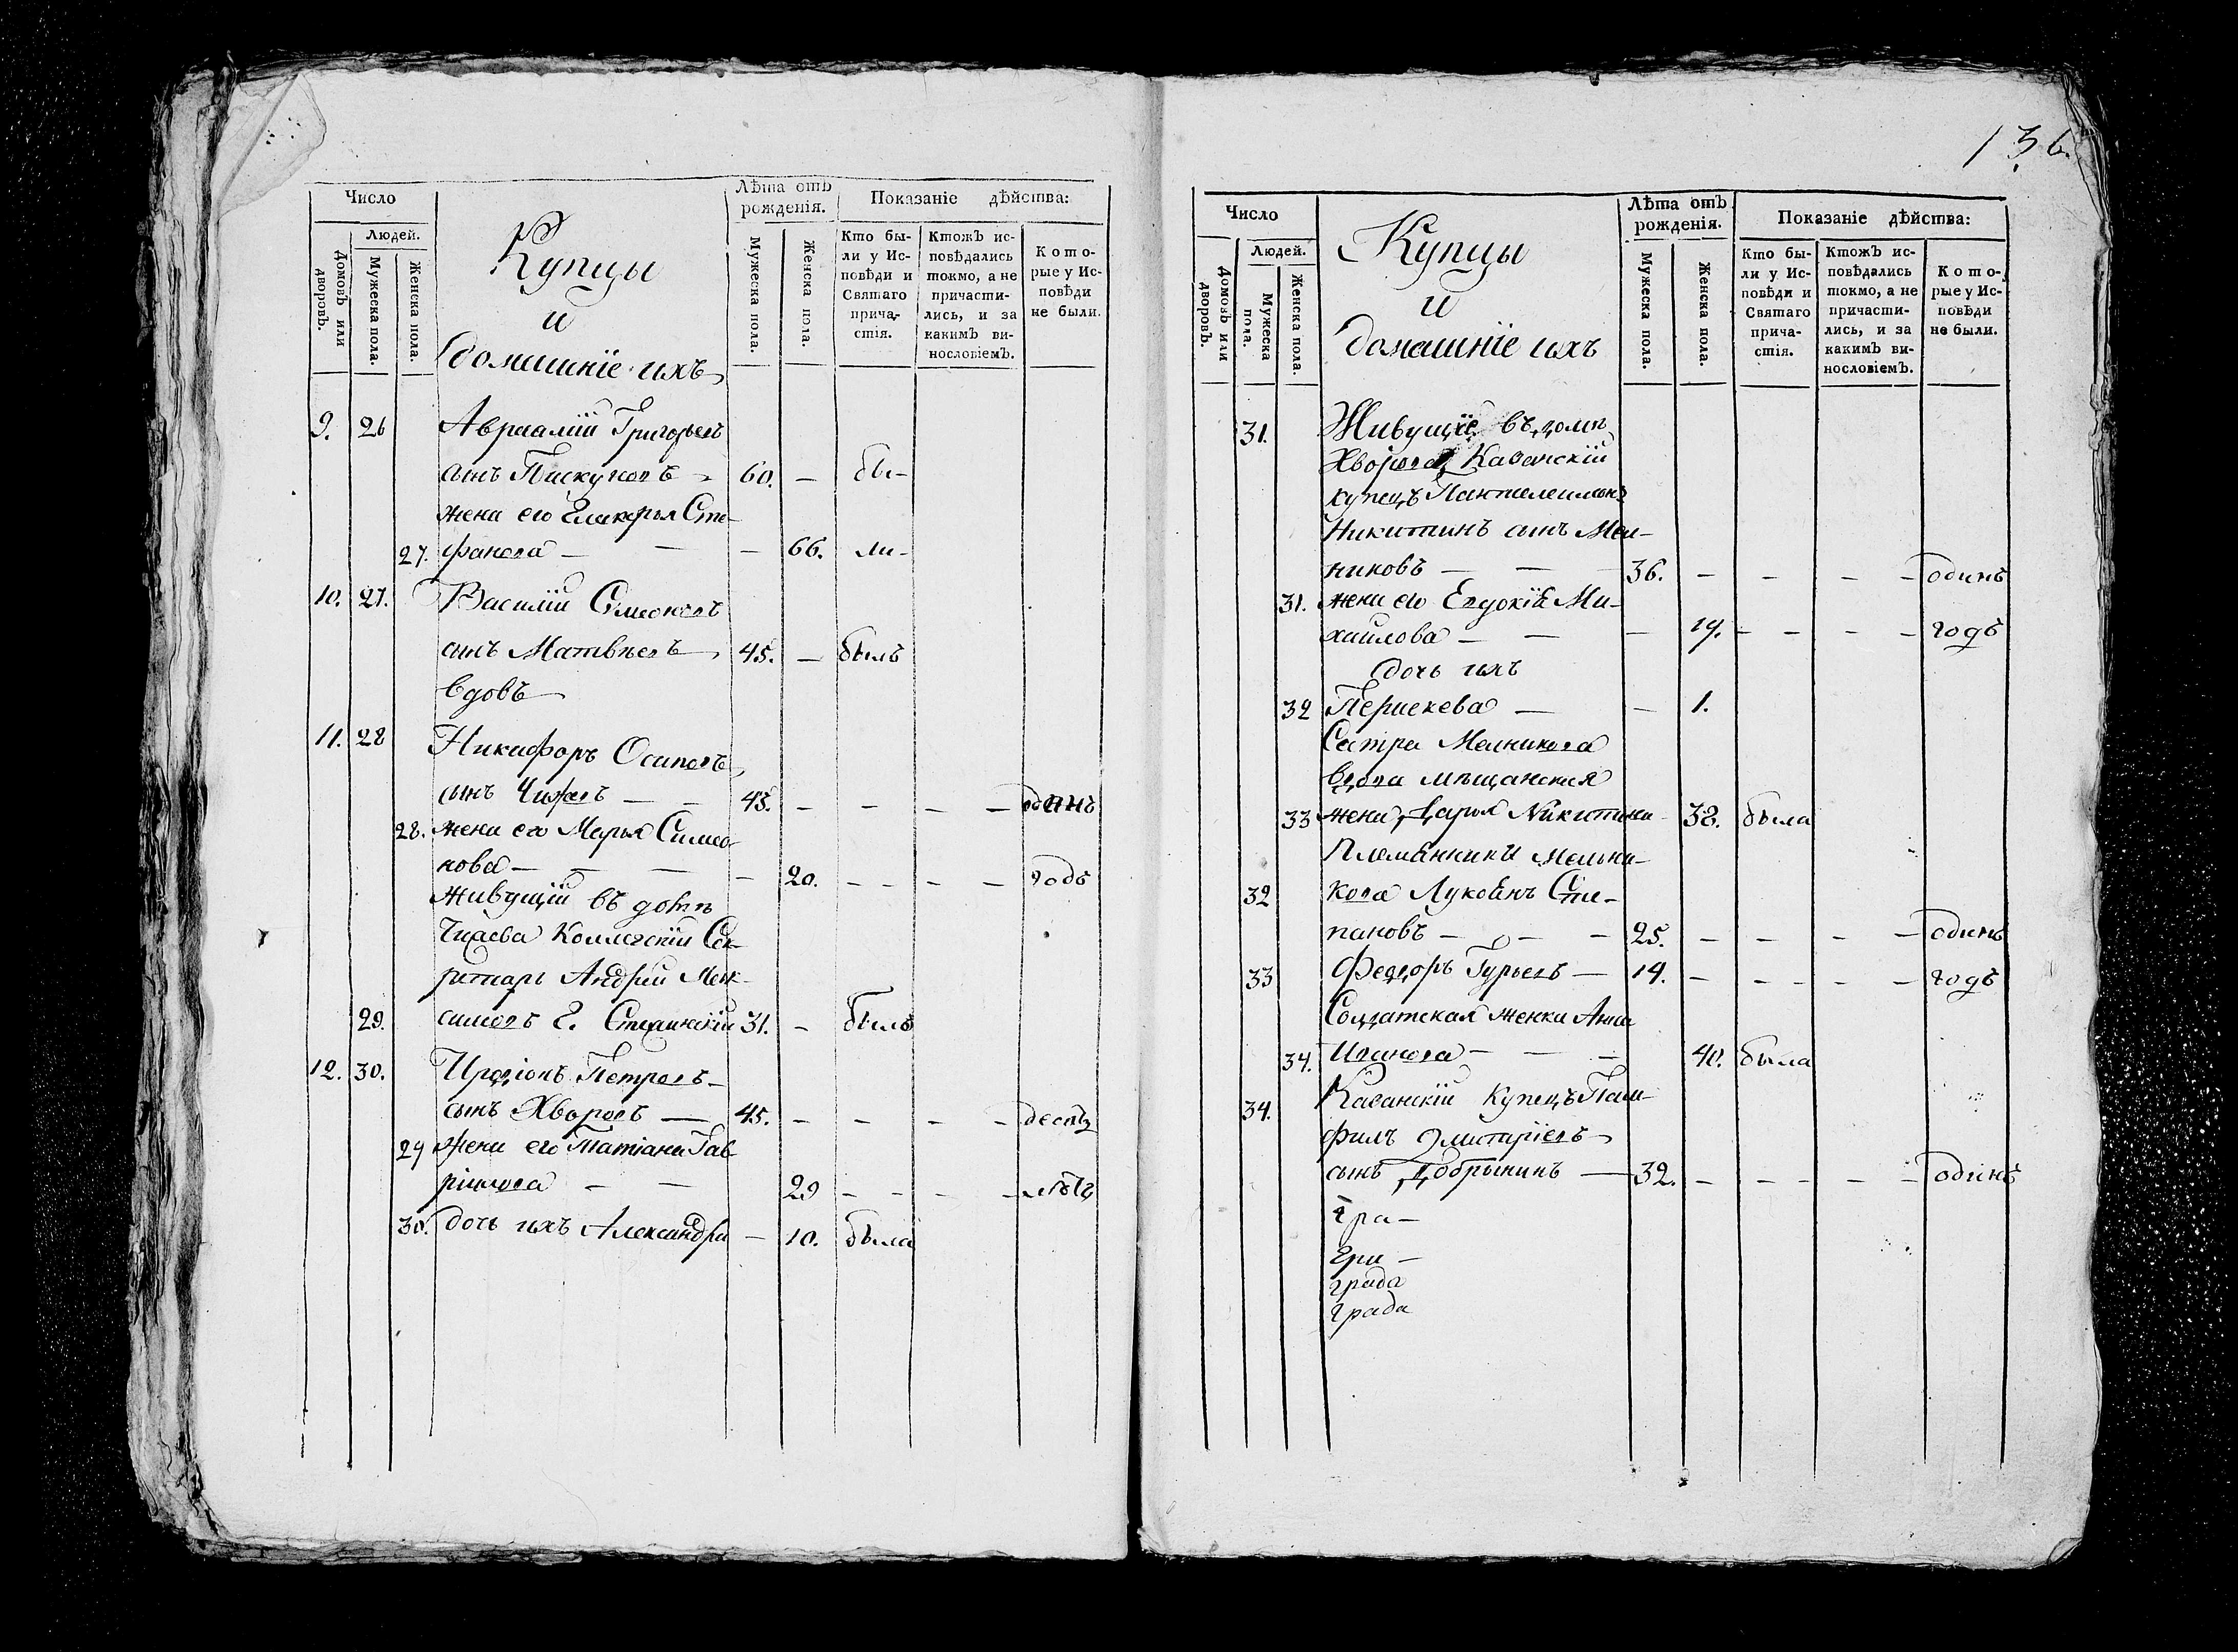 136.
Число
Людей.
Домовъ или дворовъ.
Мужеска пола.
Женска пола.
Купцы
и
домашніе ихъ
Лѣта отъ рожденія.
Мужеска пола.
Женска пола.
Показаніе дѣйства:
Кто бы-
ли у Ис-
повѣди и
Святаго
прича-
стія.
Ктожъ ис-
повѣдались
токмо, а не
причасти-
лись, и за
какимъ ви-
нословіемъ.
Кото-
рые у Ис-
повѣди
не были.
9. 26 Авраамій Григорьевъ
сынъ Пискуновъ 60. — бы-
жена его Гликерья Сте-
27. фанова — — — 66. ли-
10. 27. Василій Симеоновъ
сынъ Матвѣевъ 45. — былъ
вдовъ
11. 28 Никифоръ Осиповъ
сынъ Чижовъ — — 43. — — — — одинъ
28. жена его Марья Симео-
нова — — — — 20. — — — — годъ
живущій въ домѣ
Коллегскій Сек-
ретарь Андрей Мак-
29. симовъ г. 31. — былъ
12. 30. Иродіонъ Петровъ
сынъ Хворовъ — 45. — — — — десять
29 жена его Татіана Гав-
рилова — — 29 — — — — лѣтъ
30. дочь ихъ Александра — 10. была
Число
Людей.
Домовъ или дворовъ.
Мужеска пола.
Женска пола.
Купцы
и
домашніе ихъ
Лѣта отъ рожденія.
Мужеска пола.
Женска пола.
Показаніе дѣйства:
Кто бы-
ли у Ис-
повѣди и
Святаго
прича-
стія.
Ктожъ ис-
повѣдались
токмо, а не
причасти-
лись, и за
какимъ ви-
нословіемъ.
Кото-
рые у Ис-
повѣди
не были.
31. Живущіе въ домѣ
Хворова Казанскій
купецъ Пантелеимонъ
Никитинъ сынъ Мел-
никовъ — — 36. — — — — одинъ
31. жена его Евдокія Ми-
хайлова — — — 19. — — — — годъ
дочь ихъ
32 Параскева — — 1.
Сестра Мелникова
вдова мѣщанская
33 жена Дарья Никитина 38. была
Племянники Мельни-
32 кова Лукоянъ Сте-
пановъ — — — 25. — — — — одинъ
33 Федоръ Гурьевъ — 19. — — — — годъ
Солдатская женка Анна
34. Иванова — — — 40. была
34. Казанскій купецъ Пам-
филъ Дмитріевъ
сынъ Добрынинъ — 32. — — — — одинъ
гра —
гра —
града
града